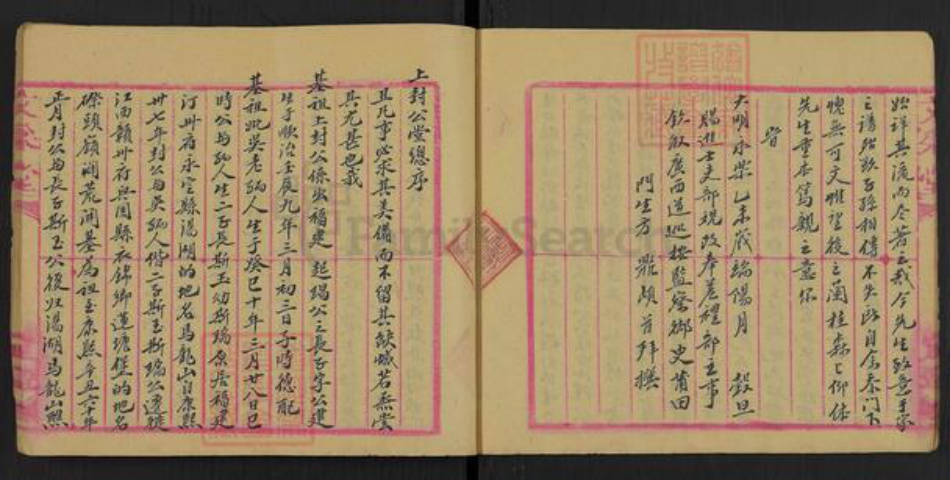 始詳其流而尽著之哉今先生致意手家
之譜殆欤子孫相傳不失此自余忝门下
愧無可文惟望後之蘭桂森々仰体
先生重本篤親之意尔
旹
大明永樂乙未歲端陽月 穀旦
賜進士吏部現改奉差禮部主事
欽改廣西道巡按監察御史莆田
門生方 鼎頓首拜撰
上封公堂總序
且凡事必求其美備而不留其缺憾若烝嘗
其尤甚也哉
基祖上封公係出福建 起瑞公之長子字公建
生于順治壬辰九年三月初三日子時德配
基祖妣吳老孺人生于癸巳十年三月廿八日巳
時公与孺人生二子長斯玉幼斯瑞原居福建
汀州府永定縣湯湖的地名馬龍山自康熙
卅七年封公与吳孺人偕二子斯玉斯瑞公遷徙
江西贛州府興国縣衣錦鄉蓮塘堡的地名
磜頭嶺開荒開基為祖至康熙辛丑六十年
正月封公与長子斯玉公復归湯湖馬龍山熙
FamilySearch